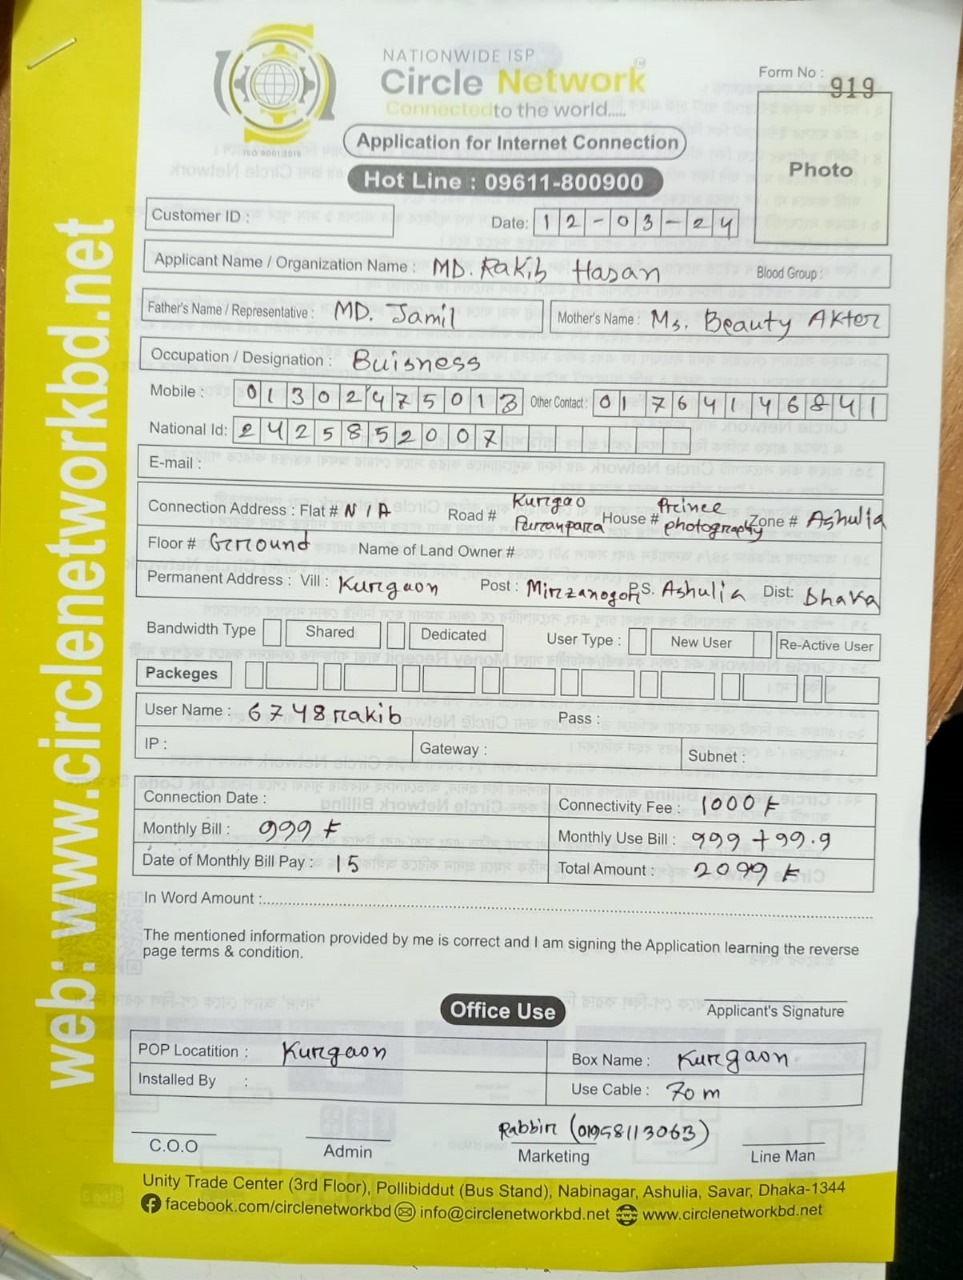 NATIONWIDE ISP
Circle Network
Connected to the world.....
ISO 9001:2015
Form No : 919
Application for Internet Connection
Photo
Hot Line : 09611-800900
Customer ID :
Date: 12-03-24
Applicant Name / Organization Name : MD. Rakib Hasan Blood Group :
Father's Name / Representative : MD. Jamil Mother's Name : Ms. Beauty Akter
Occupation / Designation : Buisness
Mobile : 01302475013 Other Contact : 01764146841
National Id: 2425852007
E-mail :
Connection Address : Flat # N/A Road # Kurgao Purranpara House # Prince photography Zone # Ashulia
Floor # Grround Name of Land Owner #
Permanent Address : Vill : Kurgaon Post : Mirzanogor P.S. Ashulia Dist: Dhaka
Bandwidth Type Shared Dedicated User Type : New User Re-Active User
Packeges
User Name : 6748rakib Pass :
IP : Gateway : Subnet :
Connection Date : Connectivity Fee : 1000 ৳
Monthly Bill : 999 ৳ Monthly Use Bill : 999 + 99.9
Date of Monthly Bill Pay : 15 Total Amount : 2099 ৳
In Word Amount :
The mentioned information provided by me is correct and I am signing the Application learning the reverse
page terms & condition.
Applicant's Signature
Office Use
POP Locatition : Kurgaon Box Name : Kurgaon
Installed By : Use Cable : 70 m
Rabbir (01958113063)
C.O.O Admin Marketing Line Man
Unity Trade Center (3rd Floor), Pollibiddut (Bus Stand), Nabinagar, Ashulia, Savar, Dhaka-1344
facebook.com/circlenetworkbd info@circlenetworkbd.net www.circlenetworkbd.net
web: www.circlenetworkbd.net